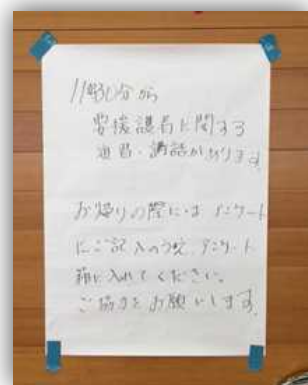 11時30分から
要援護者に関する
演習・講話があります。
お帰りの際には アンケート
にご記入のうえ、アンケート
箱に入れてください。
ご協力をお願いします。